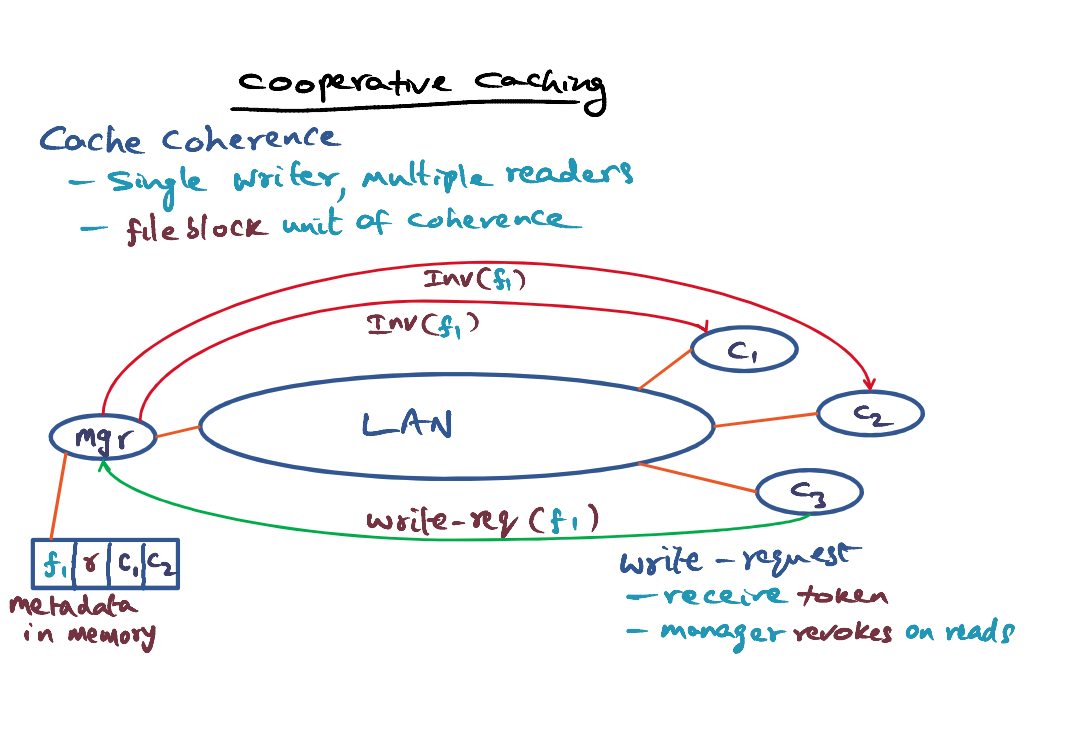 Cooperative Caching
Cache Coherence
- Single writer, multiple readers
- file block unit of coherence
Inv(f1)
Inv(f1)
C1
C2
LAN
mgr
C3
write-req (f1)
f1 r C1 C2
metadata
in memory
write - request
- receive token
- manager revokes on reads